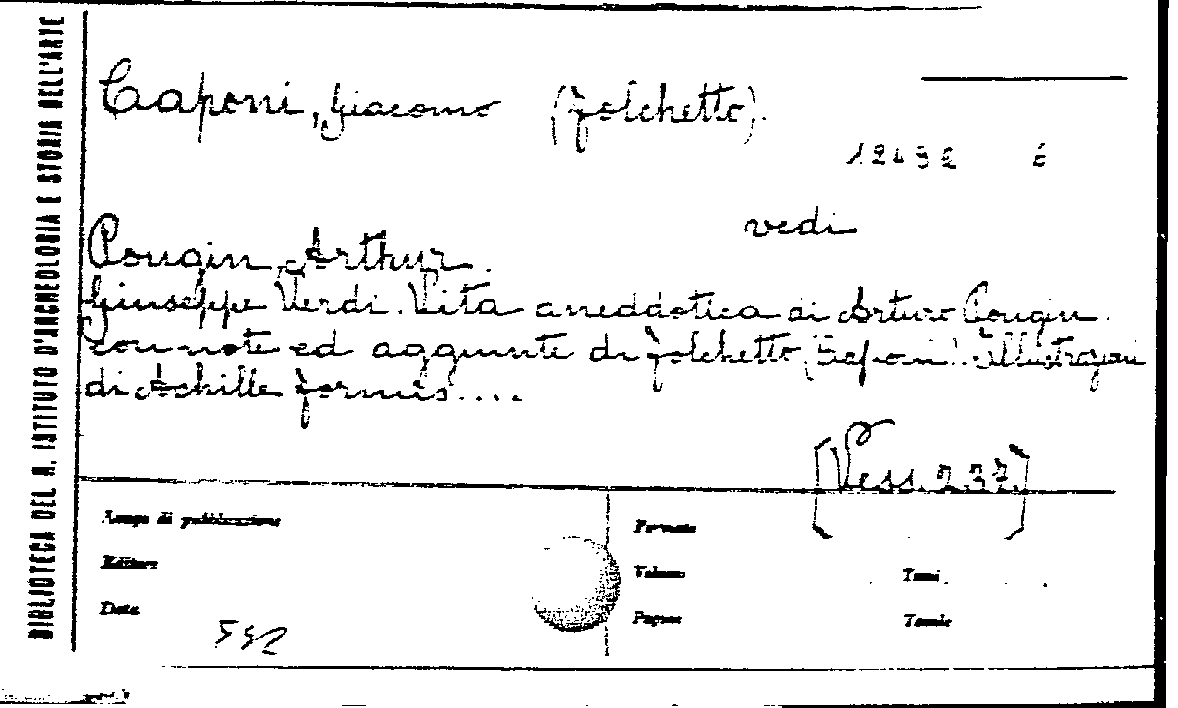 BIBLIOTECA DEL R. ISTITUTO D'ARCHEOLOGIA E STORIA DELL'ARTE
Caponi, Giacomo (Folchetto).
vedi
Pougin, Arthur.
Giuseppe Verdi. Vita aneddotica di Arturo Pougin.
con note ed aggiunte di Folchetto (Caponi). illustrazioni
di Achille Formis....
[Vess. 237]
Luogo di pubblicazione
Formato
Editore
Volume
Tomi
Data
Pagine
Tavole